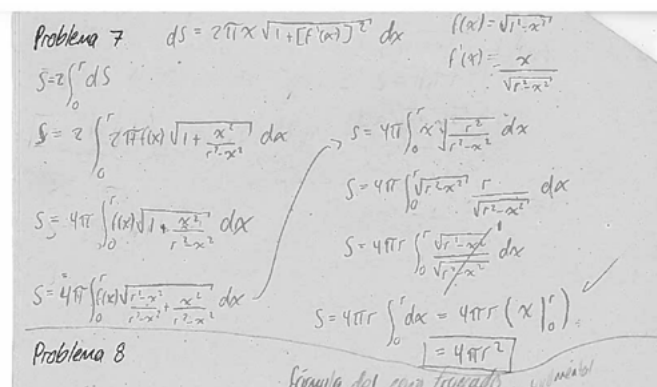 Problema 7 dS = 2πx √(1+[f'(x)]²) dx f(x) = √(r²-x²)
f'(x) = -x/√(r²-x²)
S = 2∫₀ʳ dS
S = 2 ∫₀ʳ 2πf(x) √(1 + x²/(r²-x²)) dx
S = 4π ∫₀ʳ f(x) √(1 + x²/(r²-x²)) dx
S = 4π ∫₀ʳ f(x) √((r²-x²)/(r²-x²) + x²/(r²-x²)) dx
S = 4π ∫₀ʳ x √(r²/(r²-x²)) dx
S = 4π ∫₀ʳ √(r²-x²) r/√(r²-x²) dx
S = 4πr ∫₀ʳ √(r²-x²)/√(r²-x²) dx
S = 4πr ∫₀ʳ dx = 4πr (x|₀ʳ)
= 4πr²
Problema 8
fórmula del cono truncado